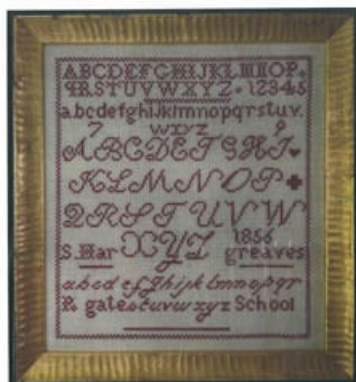 ABCDEFGHIJKLMNOP.
QRSTUVWXYZ.12345
a.bcdefghijklmnopqrstuv.
7 wxyz 9
ABCDEFGHI
KLMNOP
QRSTUVW
S.Har XYZ 1856 greaves
abcdefghijklmnopqr
R. gatestuvwxyz School